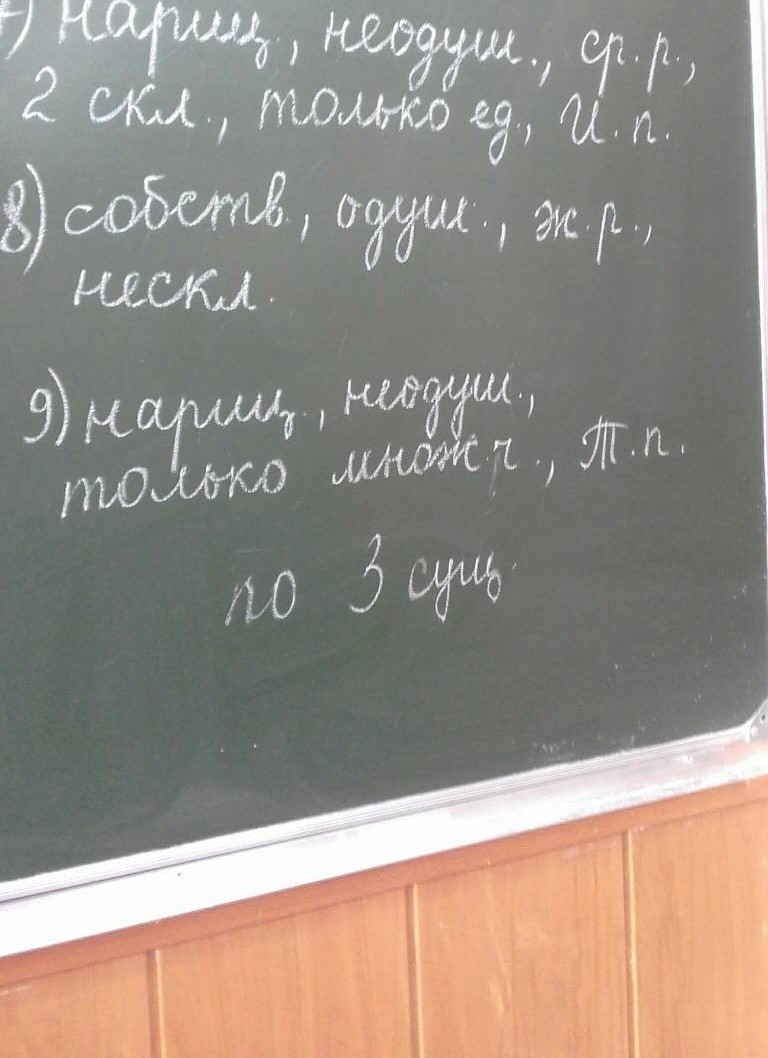 7) нариц., неодуш., ср.р.,
2 скл., только ед., И.п.
8) собств., одуш., ж.р.,
нескл.
9) нариц., неодуш.,
только множ.ч., Т.п.
по 3 сущ.